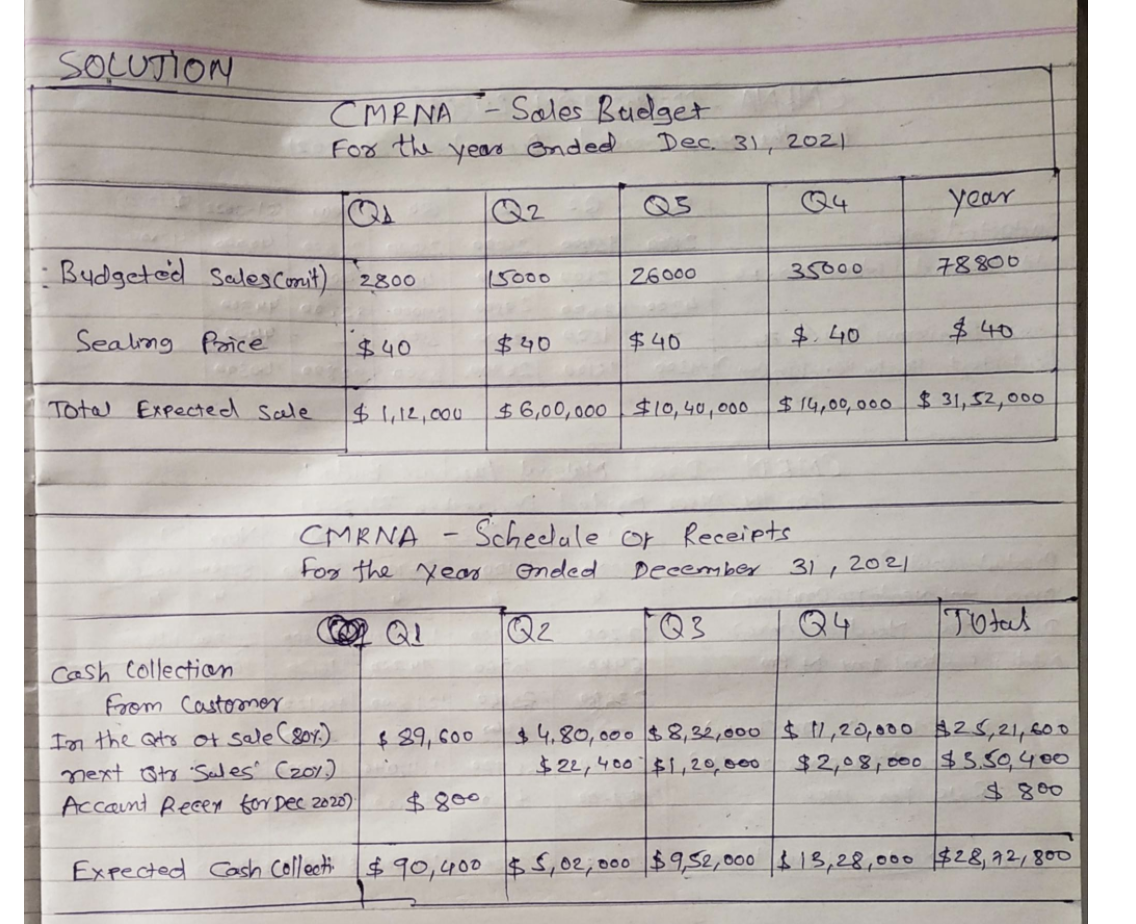 SOLUTION
CMRNA - Sales Budget
For the year ended Dec. 31, 2021
Q1 Q2 Q3 Q4 year
: Budgeted Sales(unit) 2800 15000 26000 35000 78800
Sealing Price $40 $40 $40 $.40 $40
Total Expected Sale $1,12,000 $6,00,000 $10,40,000 $14,00,000 $31,52,000
CMRNA - Schedule of Receipts
For the Year ended December 31, 2021
Q1 Q2 Q3 Q4 Total
Cash Collection
from Castomer
In the Qtr of sale (80%) $89,600 $4,80,000 $8,32,000 $11,20,000 $25,21,600
next Qtr Sales' (20%) $22,400 $1,20,000 $2,08,000 $3,50,400
Account for Dec 2020) $800 $800
Expected Cash Collecti $90,400 $5,02,000 $9,52,000 $13,28,000 $28,72,800